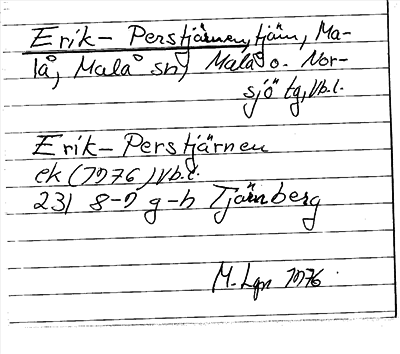 Erik-Perstjärnen, tjärn, Ma-
lå, Malå sn, Malå o. Nor-
sjö tg, Vb.l.
Erik-Perstjärnen
ek (1976) Vb.l.
231 8-9 g-h Tjärnberg
M. Lgn 1976